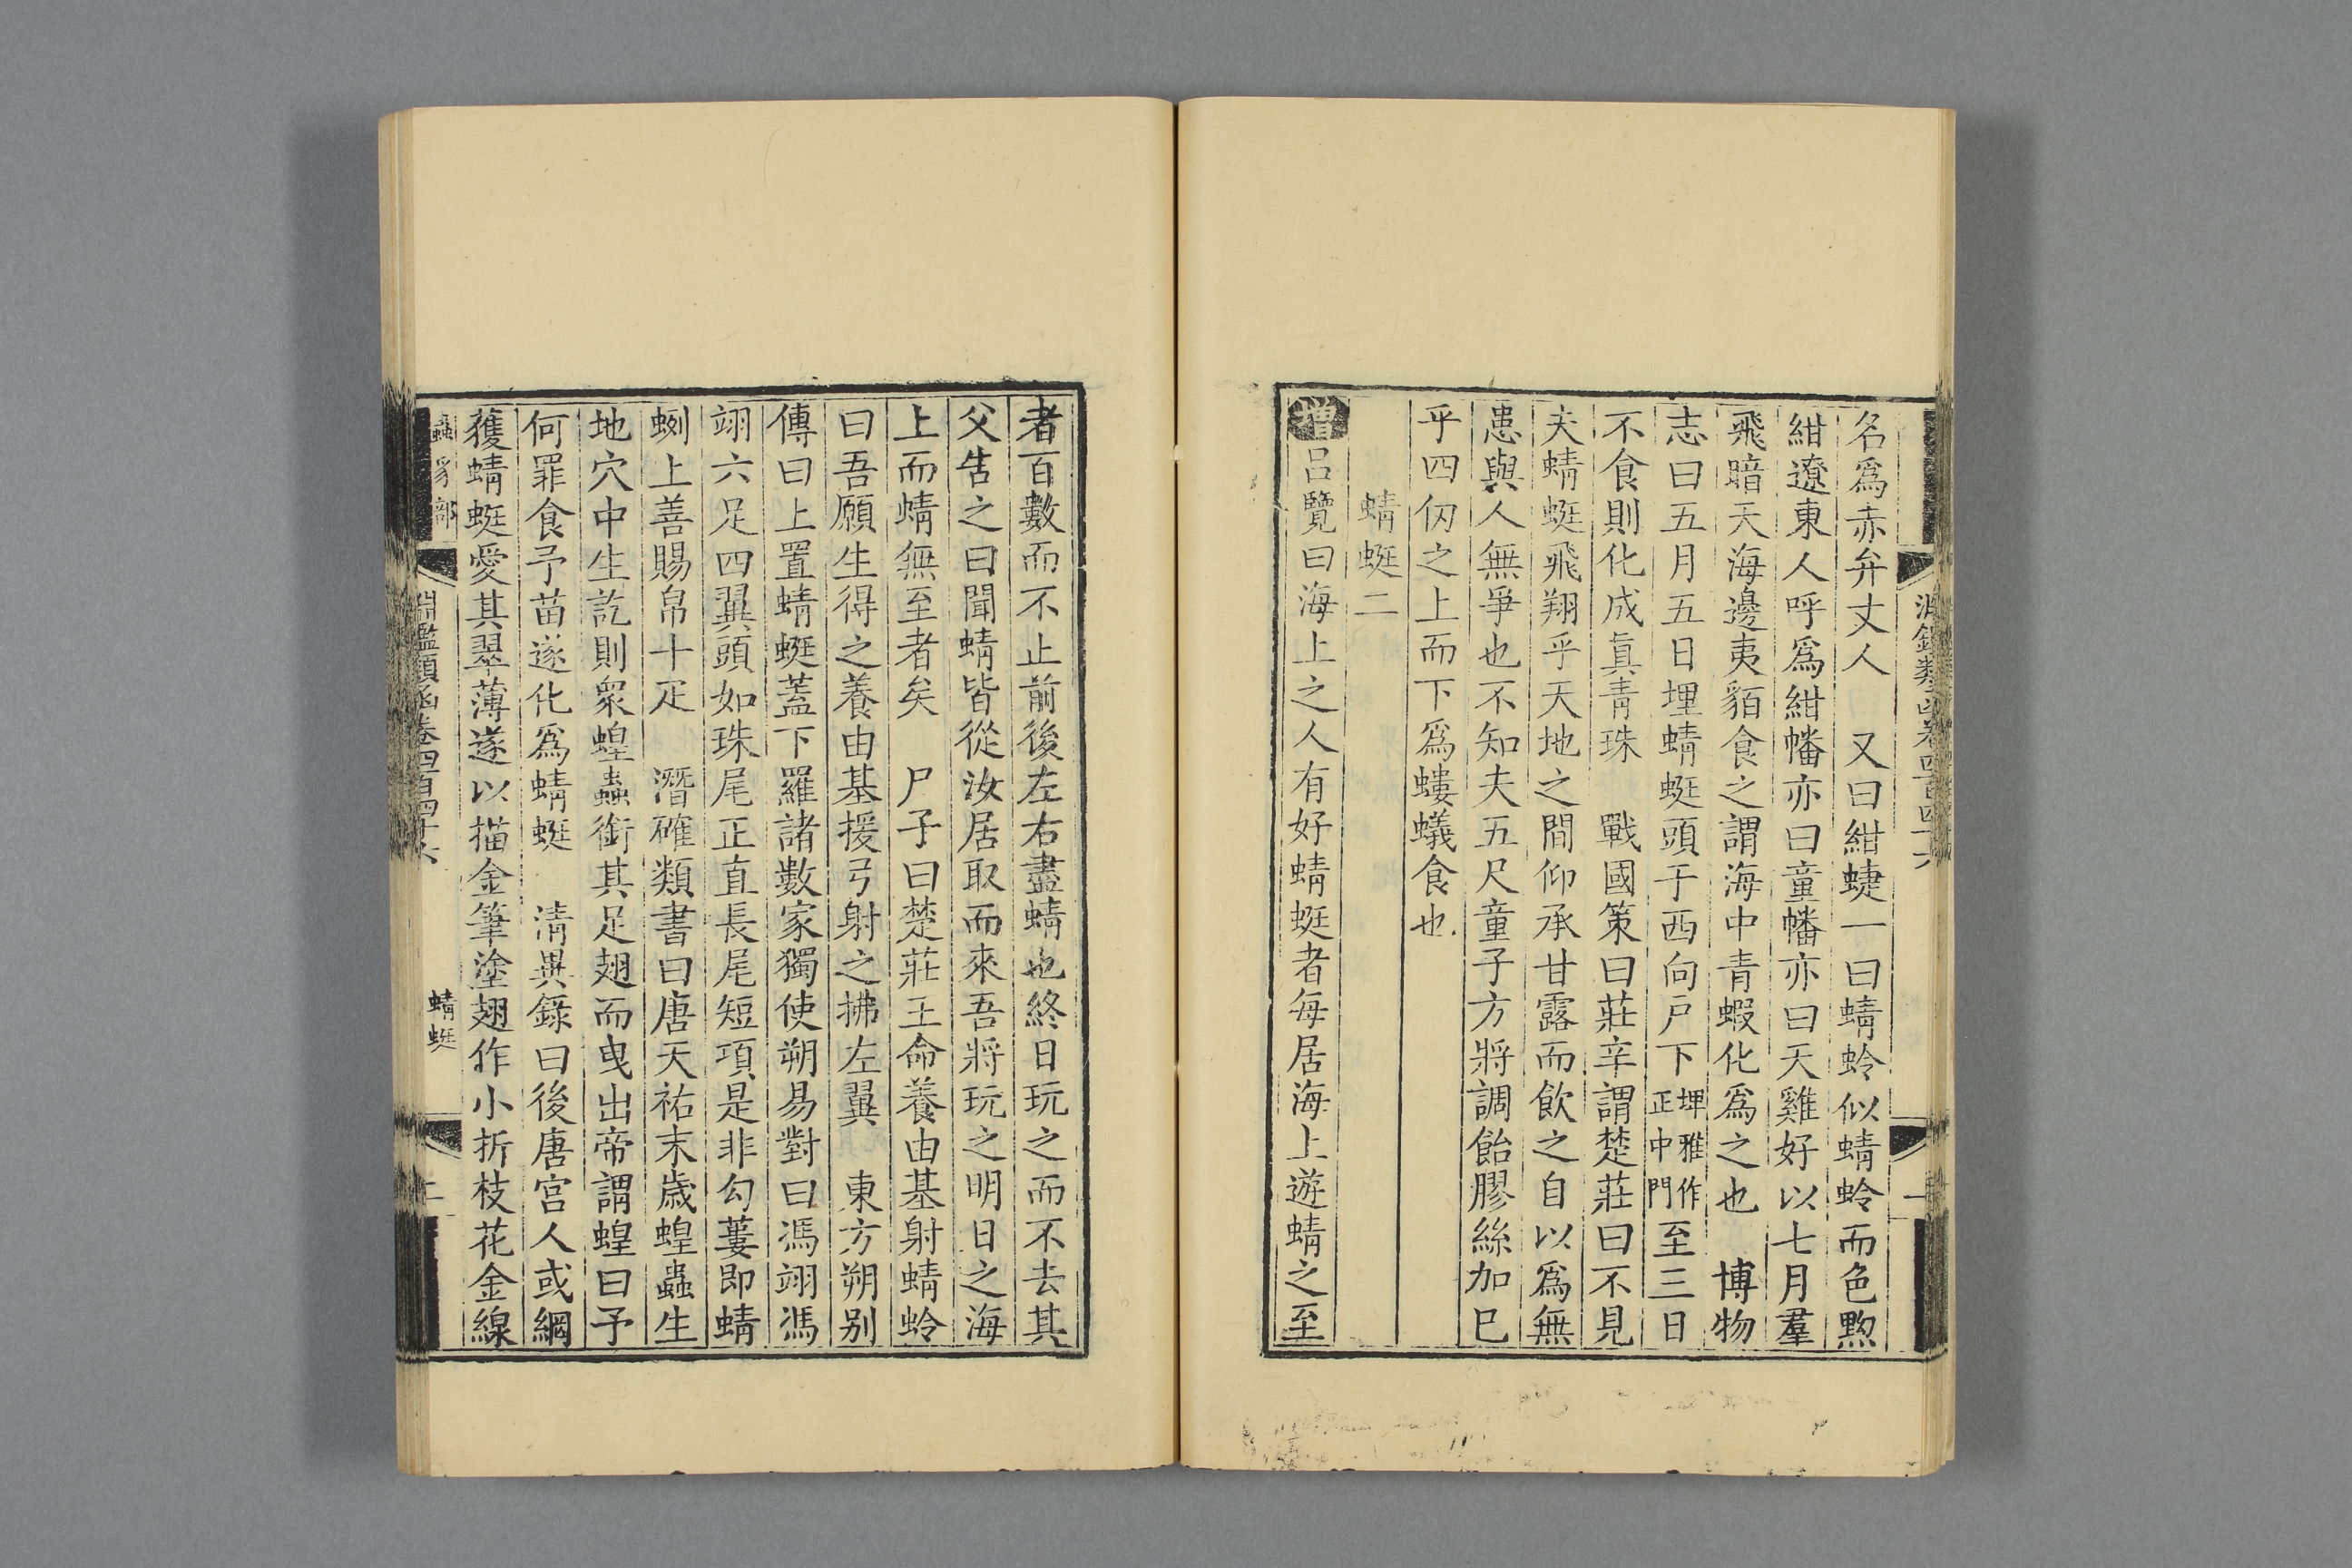 名爲赤弁丈人　又曰紺蜨一曰蜻蛉似蜻蛉而色黝
紺遼東人呼爲紺幡亦曰童幡亦曰天雞好以七月羣
飛暗天海邊夷貊食之謂海中青蝦化爲之也　博物
志曰五月五日埋蜻蜓頭于西向戸下埤雅作正中門至三日
不食則化成眞青珠　戰國策曰莊辛謂楚莊曰不見
夫蜻蜓飛翔乎天地之間仰承甘露而飲之自以爲無
患與人無爭也不知夫五尺童子方將調飴膠絲加巳
乎四仞之上而下爲螻蟻食也
蜻蜓二
增呂覽曰海上之人有好蜻蜓者每居海上遊蜻之至
者百數而不止前後左右盡蜻也終日玩之而不去其
父告之曰聞蜻皆從汝居取而來吾將玩之明日之海
上而蜻無至者矣　尸子曰楚莊王命養由基射蜻蛉
曰吾願生得之養由基援弓射之拂左翼　東方朔别
傳曰上置蜻蜓蓋下羅諸數家獨使朔易對曰馮翊馮
翊六足四翼頭如珠尾正直長尾短項是非勾蔞即蜻
蛚上善賜帛十疋　潛確類書曰唐天祐末歳蝗蟲生
地穴中生訖則衆蝗蟲銜其足翅而曳出帝謂蝗曰予
何罪食予苗遂化爲蜻蜓　清異錄曰後唐宫人或網
獲蜻蜓愛其翠薄遂以描金筆塗翅作小折枝花金線
蟲豸部
淵鑑類函卷四百四十六
蜻蜓
二